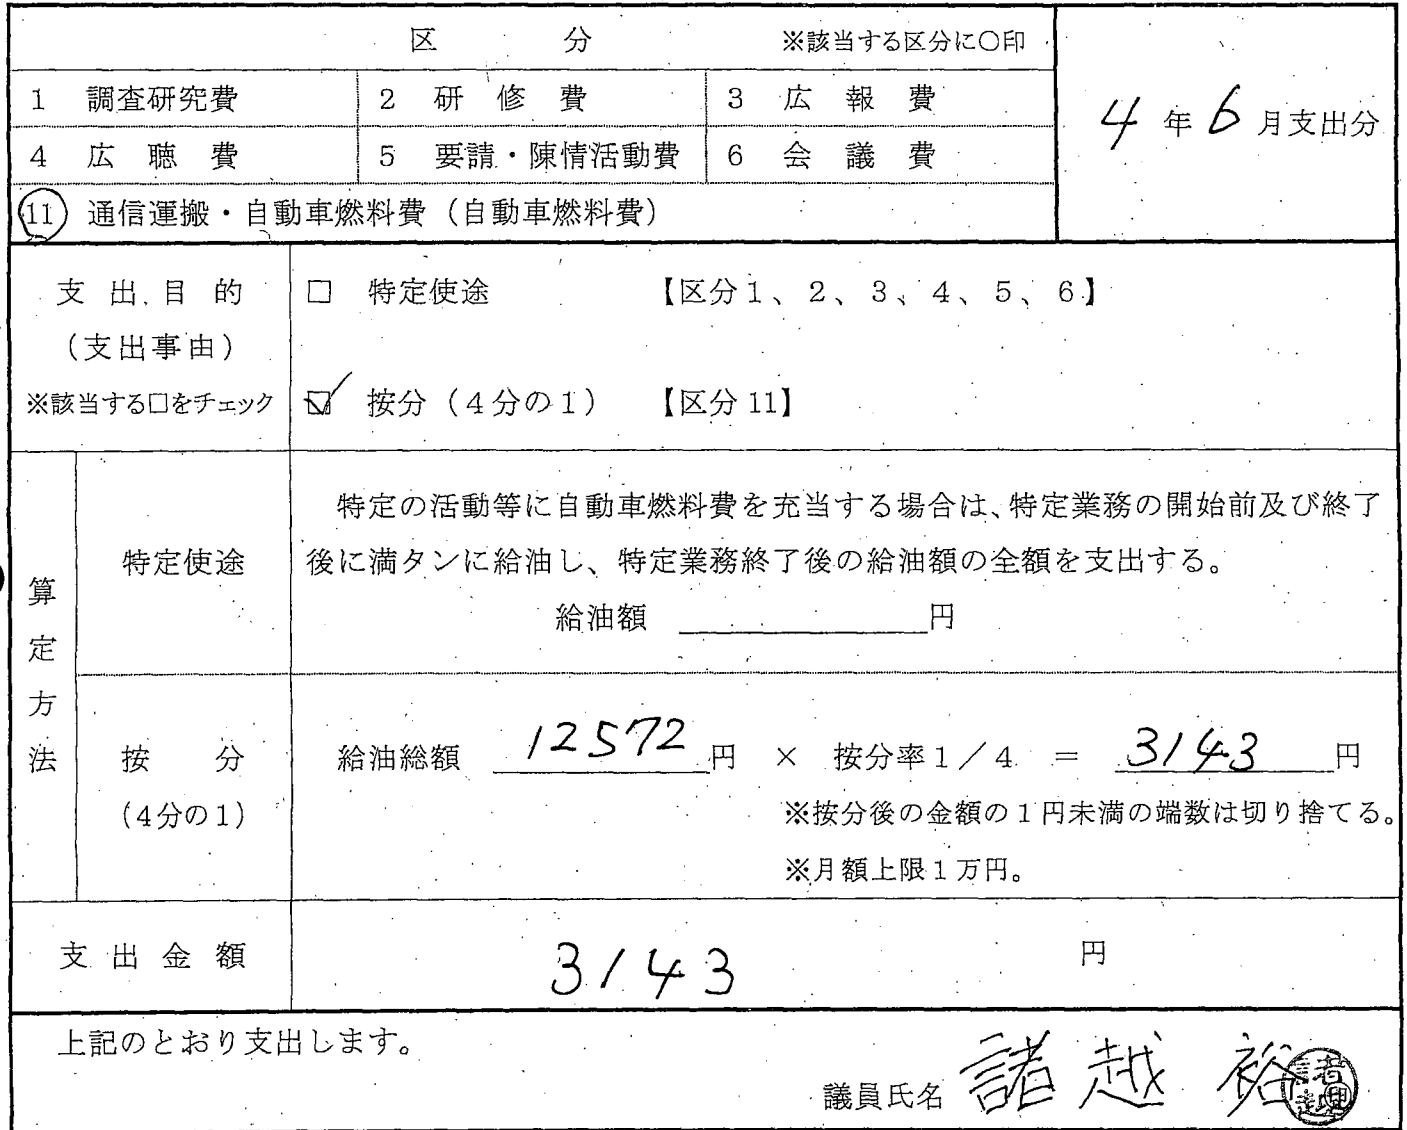 区 分 ※該当する区分に〇印
4年6月支出分
1 調査研究費 2 研修費 3 広報費
4 広聴費 5 要請・陳情活動費 6 会議費
11 通信運搬・自動車燃料費(自動車燃料費)
支出目的
(支出事由)
※該当する□をチェック
□ 特定使途 【区分1、2、3、4、5、6】
☑ 按分(4分の1) 【区分11】
算定方法
特定使途
特定の活動等に自動車燃料費を充当する場合は、特定業務の開始前及び終了
後に満タンに給油し、特定業務終了後の給油額の全額を支出する。
給油額 円
按分
(4分の1)
給油総額 12572円 × 按分率1/4 = 3143円
※按分後の金額の1円未満の端数は切り捨てる。
※月額上限1万円。
支出金額 3143 円
上記のとおり支出します。
議員氏名 諸越 裕
諸越